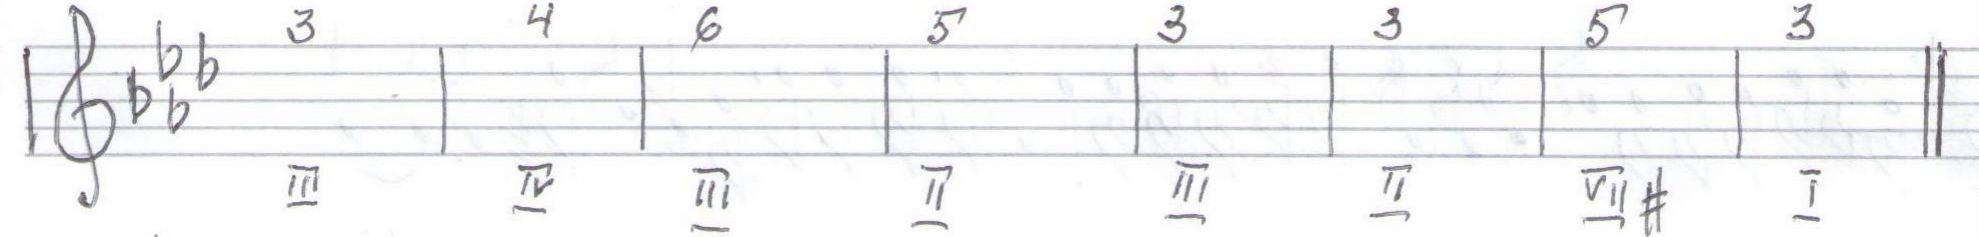 3 4 6 5 3 3 5 3
III IV III II III II VII# I